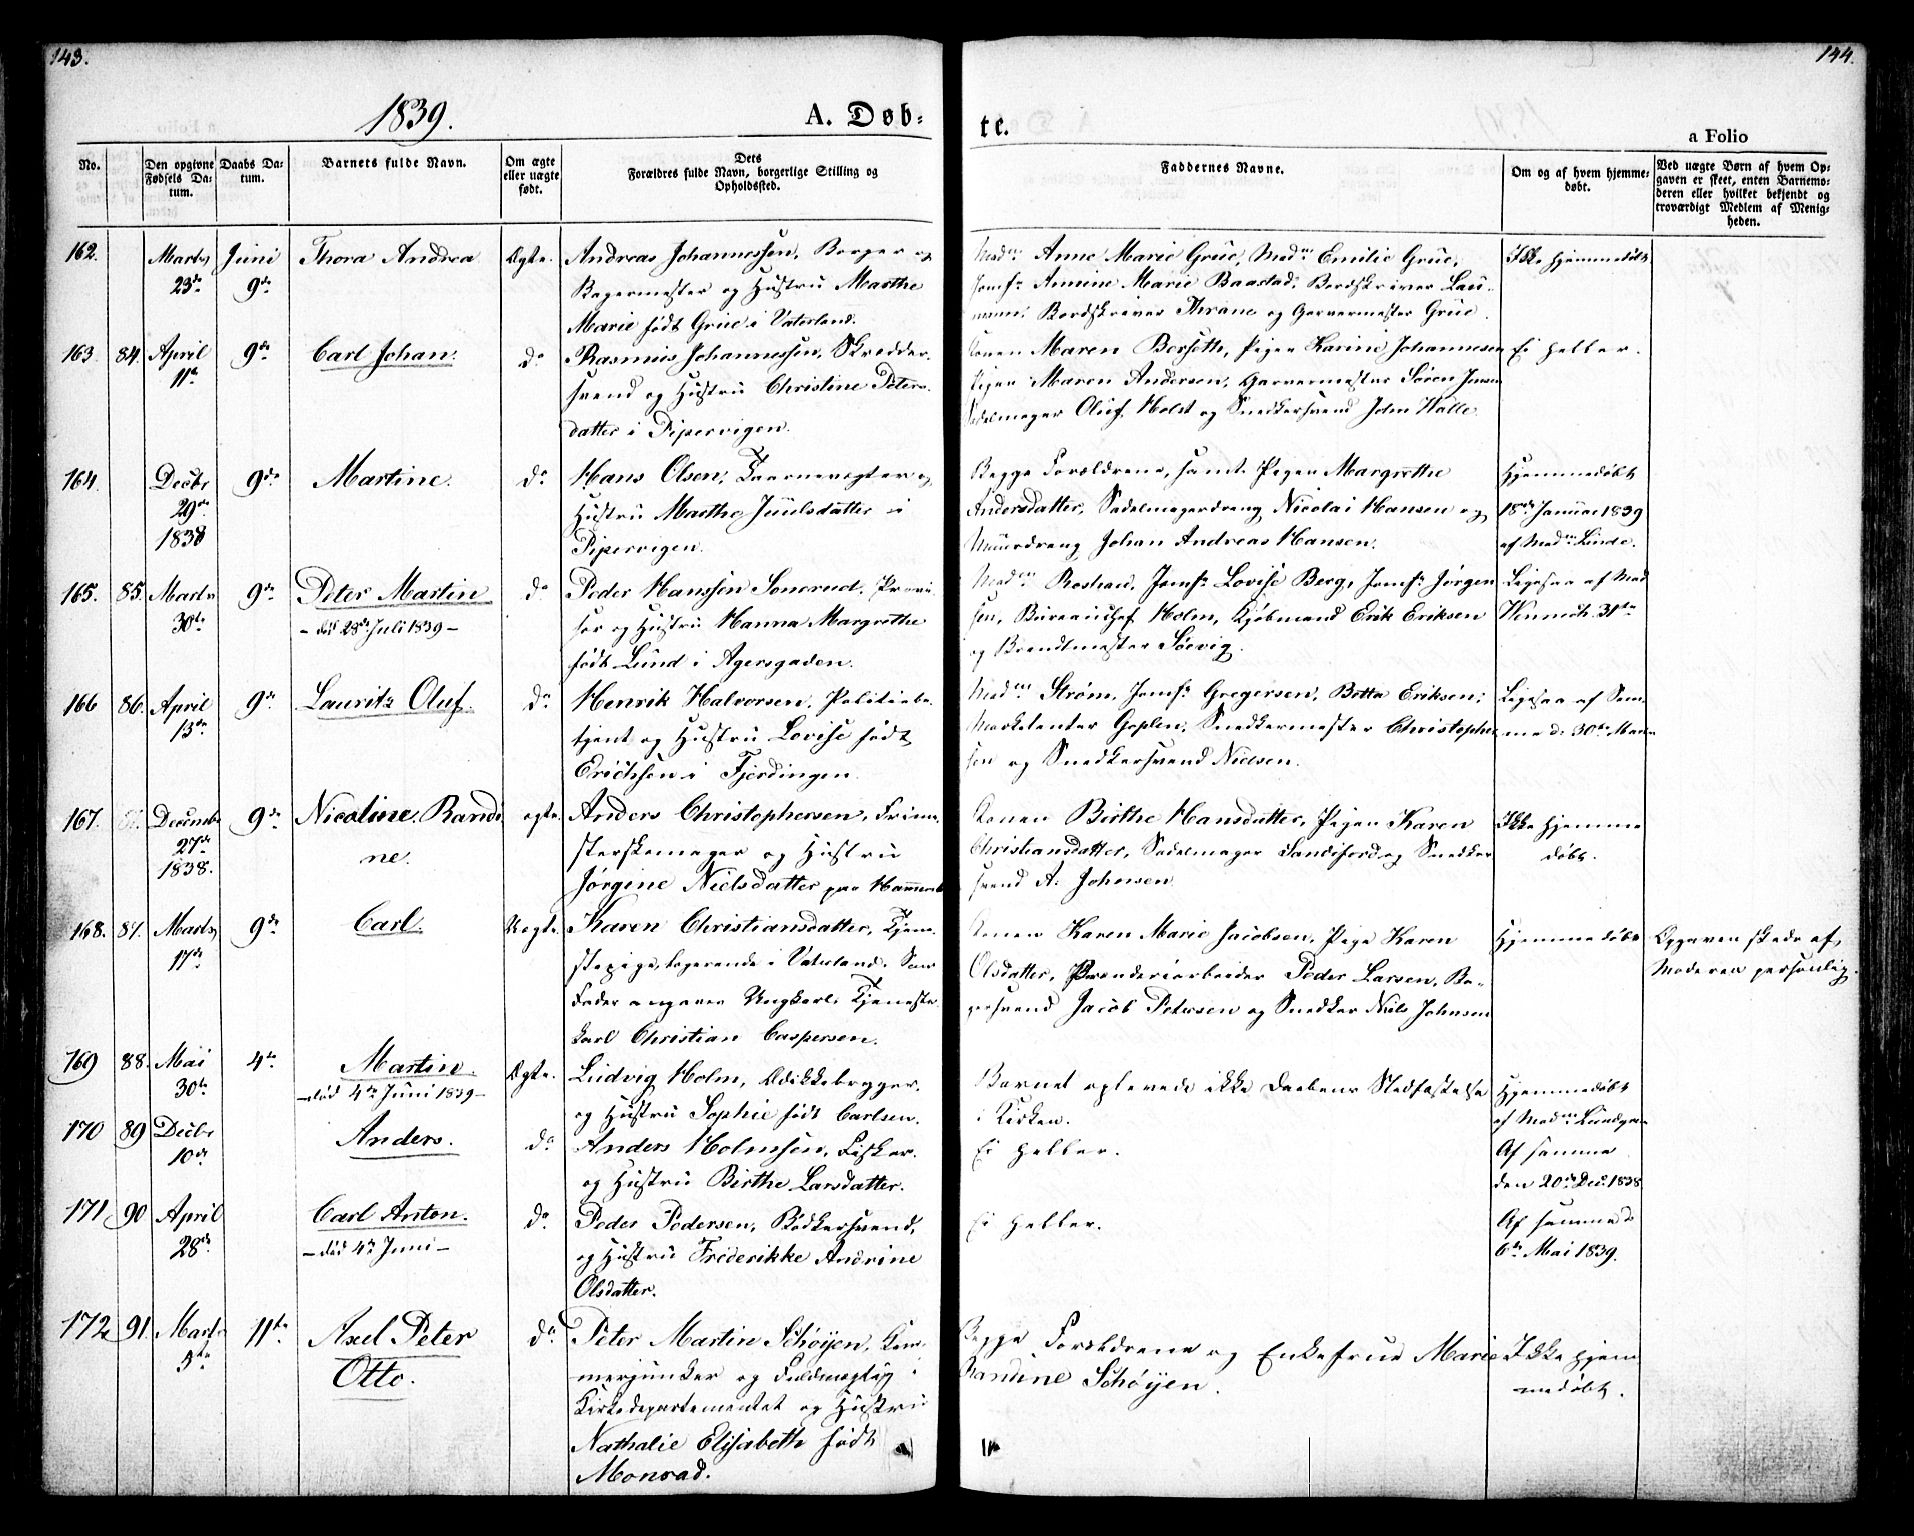 143.
144.
1839.
A. Døb-
te.
a Folio
No.
Den opgivne Fødsels Da-tum.
Daabs Da-tum.
Barnets fulde Navn.
Om ægte eller uægte født.
Dets Forældres fulde Navn, borgerlige Stilling og Opholdssted.
Faddernes Navne.
Om og af hvem hjemme-døbt.
Ved uægte Børn af hvem Op-gaven er skeet, enten Barnemo-deren eller hvilket bekjendt og troværdigt Medlem af Menig-heden.
162. Marts 23de Juni 9de Thora Andrea Ægte.
Andreas Johannessen, Borger og
Bagermester og Hustru Marthe
Marie født Grüe i Vaterland.
Madm Anne Marie Grue, Madm Emilie Grue,
Jomfr Annine Marie Baastad, Bordskriver Lau-
mann, Bordskriver Thrane og Garvermester Grüe.
Ikke hjemmedøbt
163. 84. April 11te 9de Carl Johan. do
Rasmus Johannessen, Skrædder-
svend og Hustru Christine Peters-
datter i Pipervigen.
Konen Maren Berseth, Pigen Karine Johannesen
Pigen Maren Andersen, Garvermester Søren Jensen
Sadelmager Oluf Holst og Snedkersvend John Walle
Ei heller.
164. Decbr 29de 1838 9de Martine. do
Hans Olsen, Taarnevægter og
Hustru Marthe Juulsdatter i
Pipervigen.
Begge Forældrene, samt Pigen Margrethe
Andersdatter, Sadelmagerdreng Nicolai Hansen og
Muurdreng Johan Andreas Hansen.
Hjemmedøbt
18de Januar 1839
af Madm Linde.
165. 85. Marts 30te 9de Peter Martin do
– død 28de Juli 1839 –
Peder Hanssen Sonerud, Provi-
sor og Hustru Hanna Margrethe
født Lund i Agersgaden.
Madm Roshau, Jomfr Lovise Berg, Jomfr Jørgen
sen, Bureauchef Holm, Kjøbmand Erik Eriksen
og Brandtmester Söevig.
Ligesaa af Mad
Winnech 31te
166 86. April 13te 9de Lauritz Oluf. do
Henrik Halvorsen, Politiebe-
tjent og Hustru Lovise født
Erichsen i Fjerdingen.
Madm Strøm, Jomfr Gregersen, Berthe Eriksen,
Marketenter Goplen, Snedkermester Christopher
sen og Snedkersvend Nielsen.
Ligesaa af Sam-
me d. 30te
167. December 27de 1838. 9de Nicoline Randi
ne. ægte.
Anders Christophersen,
og Hustru
Jørgine Nielsdatter paa
Konen Birthe Hansdatter, Pigen Karen
Christiansdatter, Sadelmager Sandiford og Snedker
svend A. Johnsen
Ikke hjemme
døbt.
168. 87. Marts 17de 9de Carl. Uægte.
Karen Christiansdatter, Tjene-
stepige, logerende i Vaterland. Som
Fader angaves Ungkarl, Tjeneste-
karl Christian Caspersen.
Konen Karen Marie Jacobsen, Pige Karen
Olsdatter, Brænderiarbeider Peder Larsen, Ba-
gersvend Jacob Petersen og Snedker Niels Johnsen
Hjemmedøbt
Opgaven skede af
Moderen personlig.
169 88. Mai 30te 4de Martin. Ægte.
– død 4de Juni 1839 –
Ludvig Holm, Ædikkebrygger
og Hustru Sophie født Carlsen.
Barnet oplevede ikke Daabens Stadfæstelse
i Kirken.
Hjemmedøbt
af Madm Lundgren
170 89 Decbr 10de Anders. do
Anders Holmsen, Fisker.
og Hustru Birthe Larsdatter.
Ei heller.
Af samme
den 20de Dec. 1838
171 90 April 28de Carl Anton. do
– død 4de Juni –
Peder Pedersen, Bødkersvend,
og Hustru Frederikke Andrine
Olsdatter.
Ei heller.
Af samme d.
6te Mai 1839.
172 91. Marts 5te 11te Axel Peter
Otto. do
Peter Martin Schøyen, Kam-
merjunker og Fuldmægtig i
Kirkedepartementet og Hustru
Nathalie Elisabeth født
Monrad.
Begge Forældrene og Enkefrue Marie
Randine Schøyen.
Ikke hjem
medøbt.